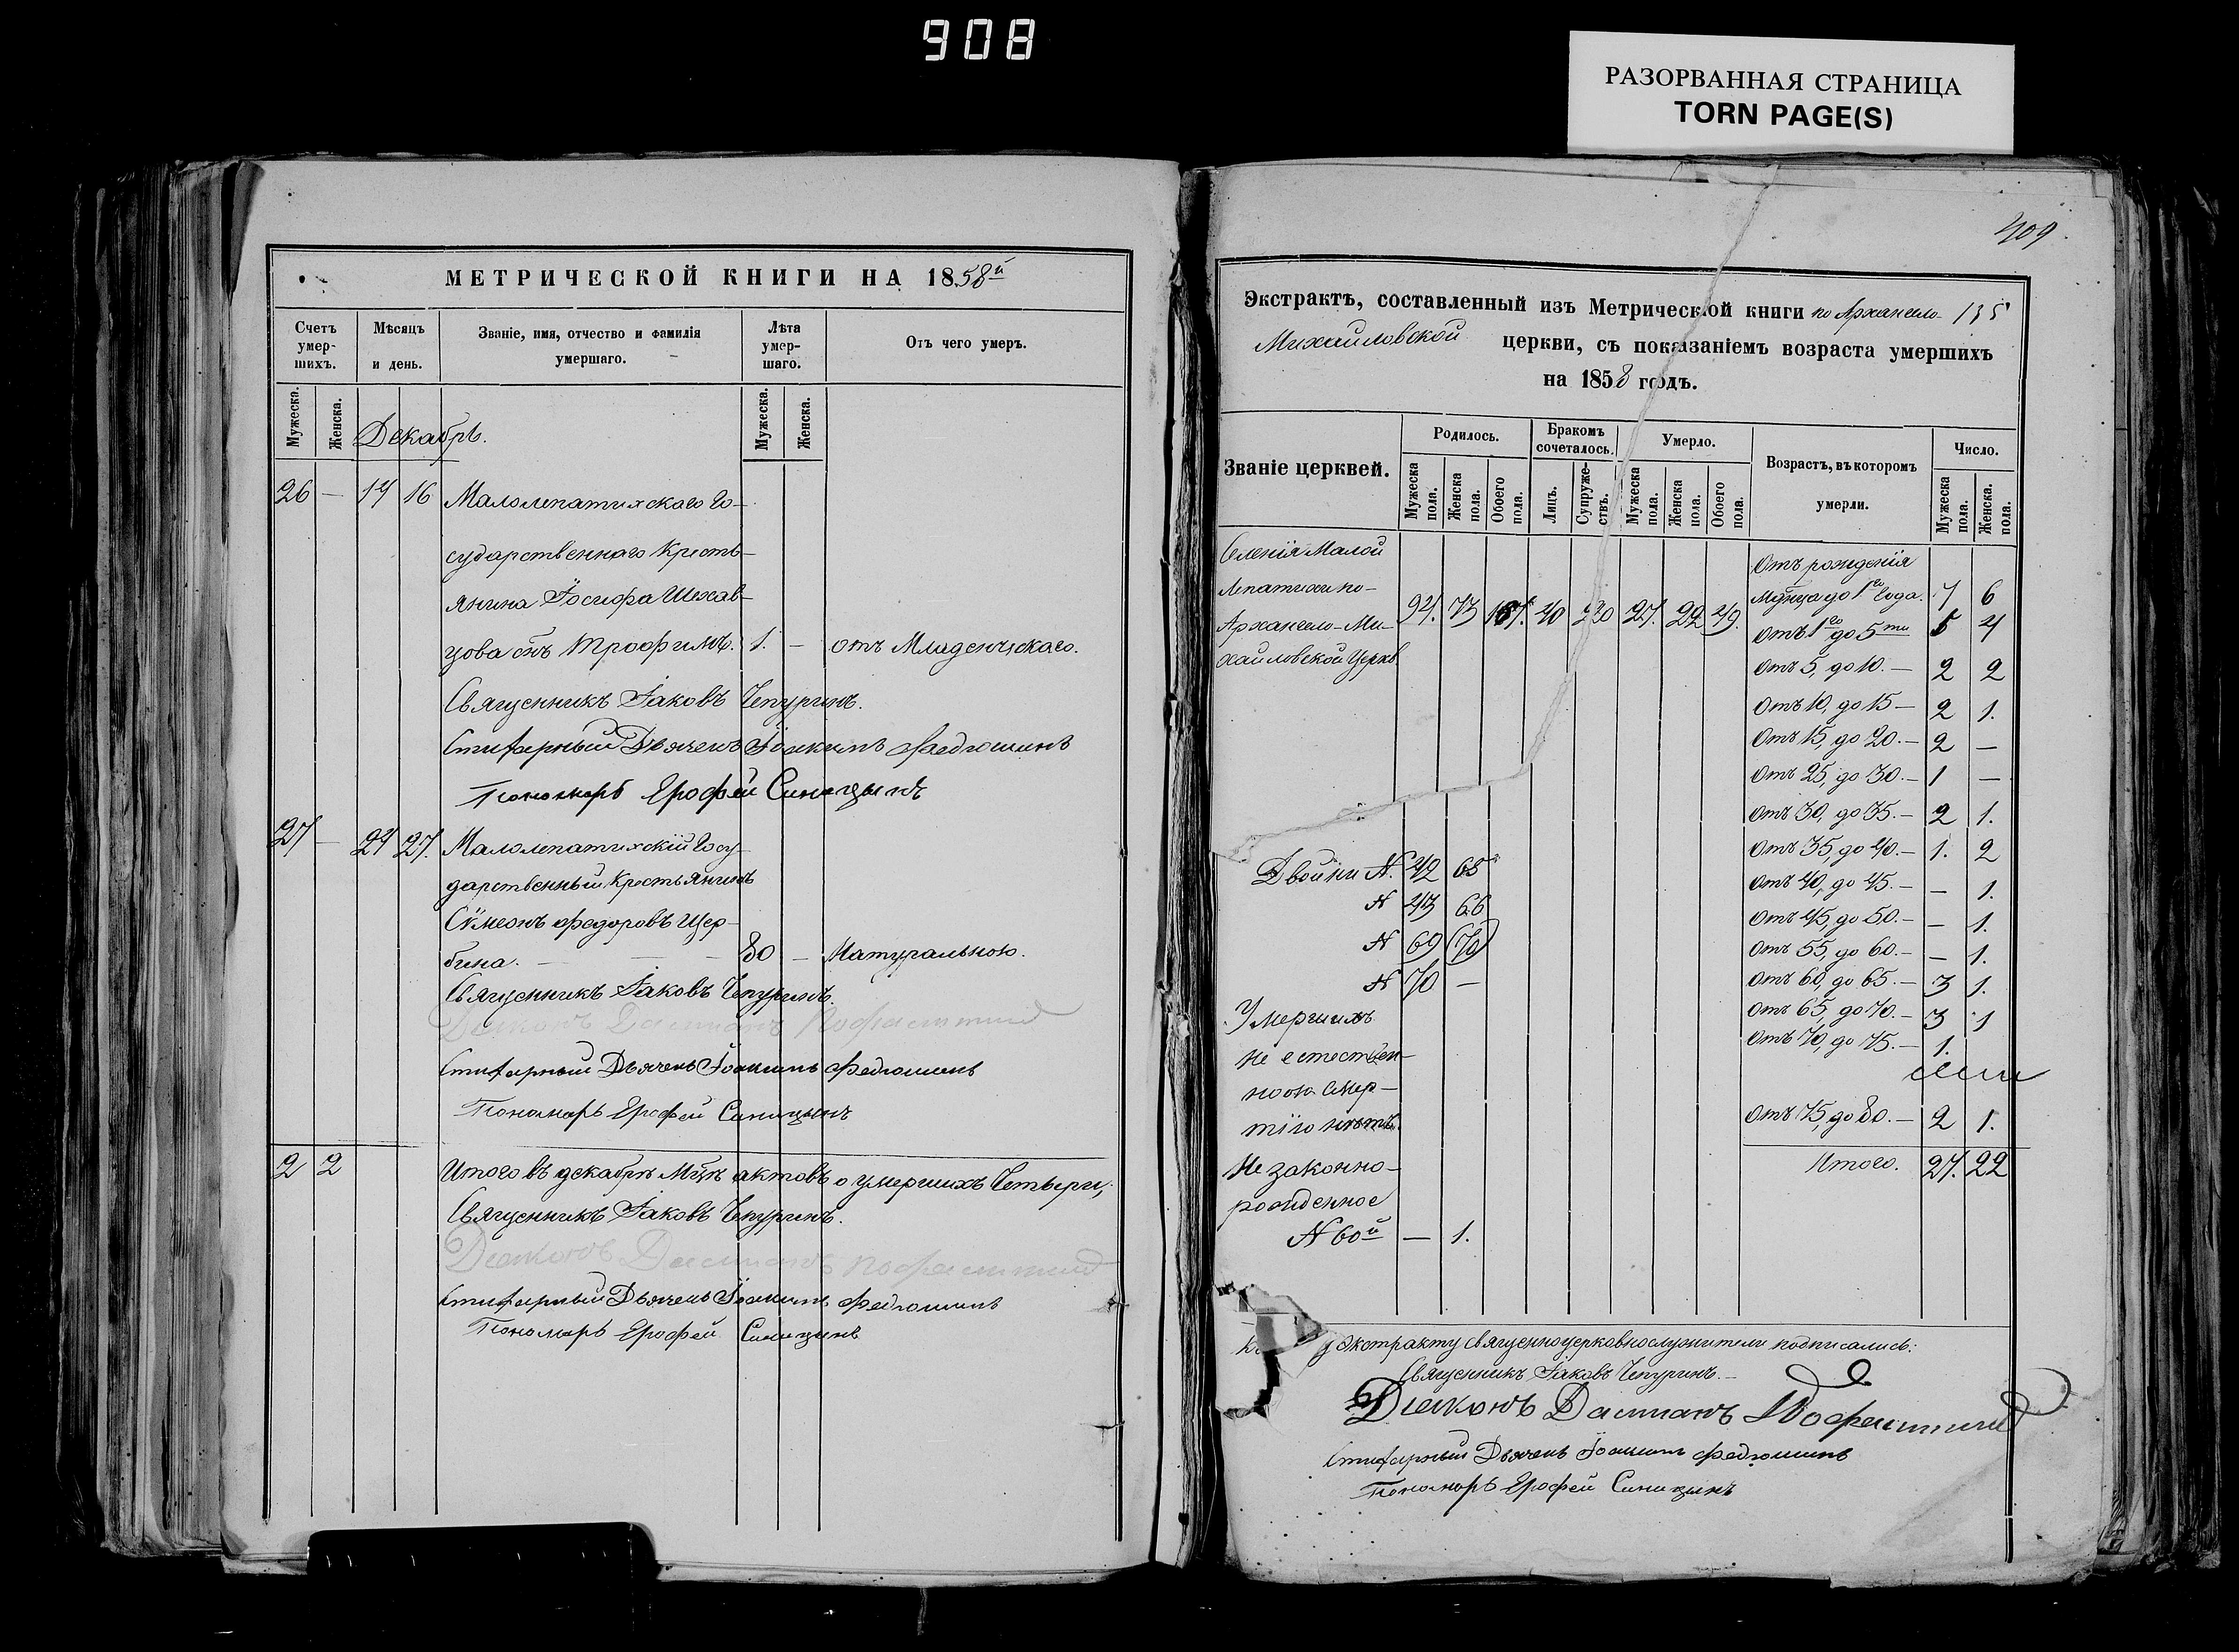 908
РАЗОРВАННАЯ СТРАНИЦА
TORN PAGE(S)
МЕТРИЧЕСКОЙ КНИГИ НА 1858й
Счетъ умер-шихъ. Мѣсяцъ и день. Званіе, имя, отчество и фамилія умершаго. Лѣта умер-шаго. Отъ чего умеръ.
Мужеска. Женска. Мужеска. Женска.
Декабрь.
26 — 14 16 Малолепатихскаго Го-
сударственнаго Кресть-
янина Іосифа Шехав-
цова сынъ Трофимъ. 1. — отъ Младенческаго.
Священникъ Іаковъ Чепуринъ.
Стихарный Дьячекъ Іоакимъ Федюшинъ
Пономарь Ерофей Синицынъ
27 — 24 27. Малолепатихскій Госу-
дарственный Крестьянинъ
Сѵмеонъ Федоровъ Щер-
бина. — — — 80 — Натуральною.
Священникъ Іаковъ Чепуринъ.
Стихарный Дьячекъ Іоакимъ Федюшинъ
Пономарь Ерофей Синицынъ
2 2 Итого въ декабрѣ Мцѣ актовъ о умершихъ Четыри,
Священникъ Іаковъ Чепуринъ.
Стихарный Дьячекъ Іоакимъ Федюшинъ
Пономарь Ерофей Синицынъ
409.
Экстрактъ, составленный изъ Метрической книги по Архангело- 135
Михайловской церкви, съ показаніемъ возраста умершихъ
на 1858 годъ.
Званіе церквей. Родилось. Бракомъ сочеталось. Умерло. Возрастъ, въ которомъ умерли. Число.
Мужеска пола. Женска пола. Обоего пола. Лицъ. Супруже-ствъ. Мужеска пола. Женска пола. Обоего пола. Мужеска пола. Женска. пола.
Селенія Малой
Лепатихи по-
Архангело-Ми-
хайловской Церкв.
94. 73 167. 40 20 27. 22 49.
Отъ рожденія
Мѣнца до 1го Года. 7 6
Отъ 1го до 5ти 5 4
Отъ 5, до 10. — 2 2
Отъ 10, до 15 — 2 1.
Отъ 15, до 20. — 2 —
Отъ 25, до 30. — 1 —
Отъ 30, до 35. — 2 1.
Отъ 35, до 40. — 1. 2
Отъ 40, до 45. — — 1.
Отъ 45, до 50. — — 1.
Отъ 55, до 60. — — 1.
Отъ 60, до 65. — 3 1.
Отъ 65, до 70. — 3 1
Отъ 70, до 75. — 1.
Отъ 75, до 80. — 2 1.
Итого. 27. 22
Двойни N. 42 65
N 43 66
N 69 (70)
N 70 —
Умершихъ
не естествен-
ною Смер-
тію нѣтъ.
Не законно-
рожденное
N 60й — 1.
Экстракту Священноцерковнослужители подписались:
Священникъ Іаковъ Чепуринъ. —
Діаконъ
Стихарный Дьячекъ Іоакимъ Федюшинъ
Пономарь Ерофей Синицынъ